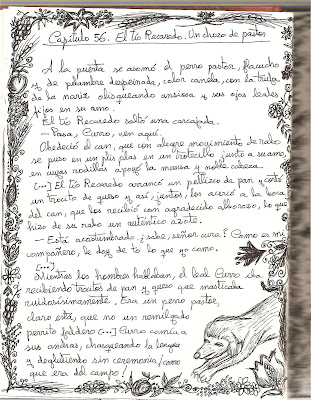 Capítulo 56. El tío Recaredo. Un chozo de pastor
A la puerta se asomó el perro pastor, flacucho
y de pelambre despeinada, color canela, con la trufa
de la nariz olisqueando ansiosa y sus ojos leales
fijos en su amo.
El tío Recaredo soltó una carcajada.
- Pasa, Curro, ven aquí.
Obedeció el can, que con alegre movimiento de rabo
se puso en un plis plas en un trotecillo junto a su amo
en cuyas rodillas apoyó la mansa y noble cabeza.
[...] El tío Recaredo arrancó un pellizco de pan y cortó
un trocito de queso y así, juntos, los acercó a la boca
del can, que los recibió con agradecido alborozo, lo que
hizo de su rabo un auténtico azote.
- Está acostumbrado ¿sabe, señor cura? Como es mi
compañero, le doy de to lo que yo como.
[...]
Mientras los hombres hablaban, el leal Curro iba
recibiendo trocitos de pan y queso que masticaba
ruidosísimamente. Era un perro pastor,
claro está, que no un remilgado
perrito faldero [...] Curro comía a
sus anchas, chasqueando la lengua
y deglutiendo sin ceremonia ¡como
que era del campo!